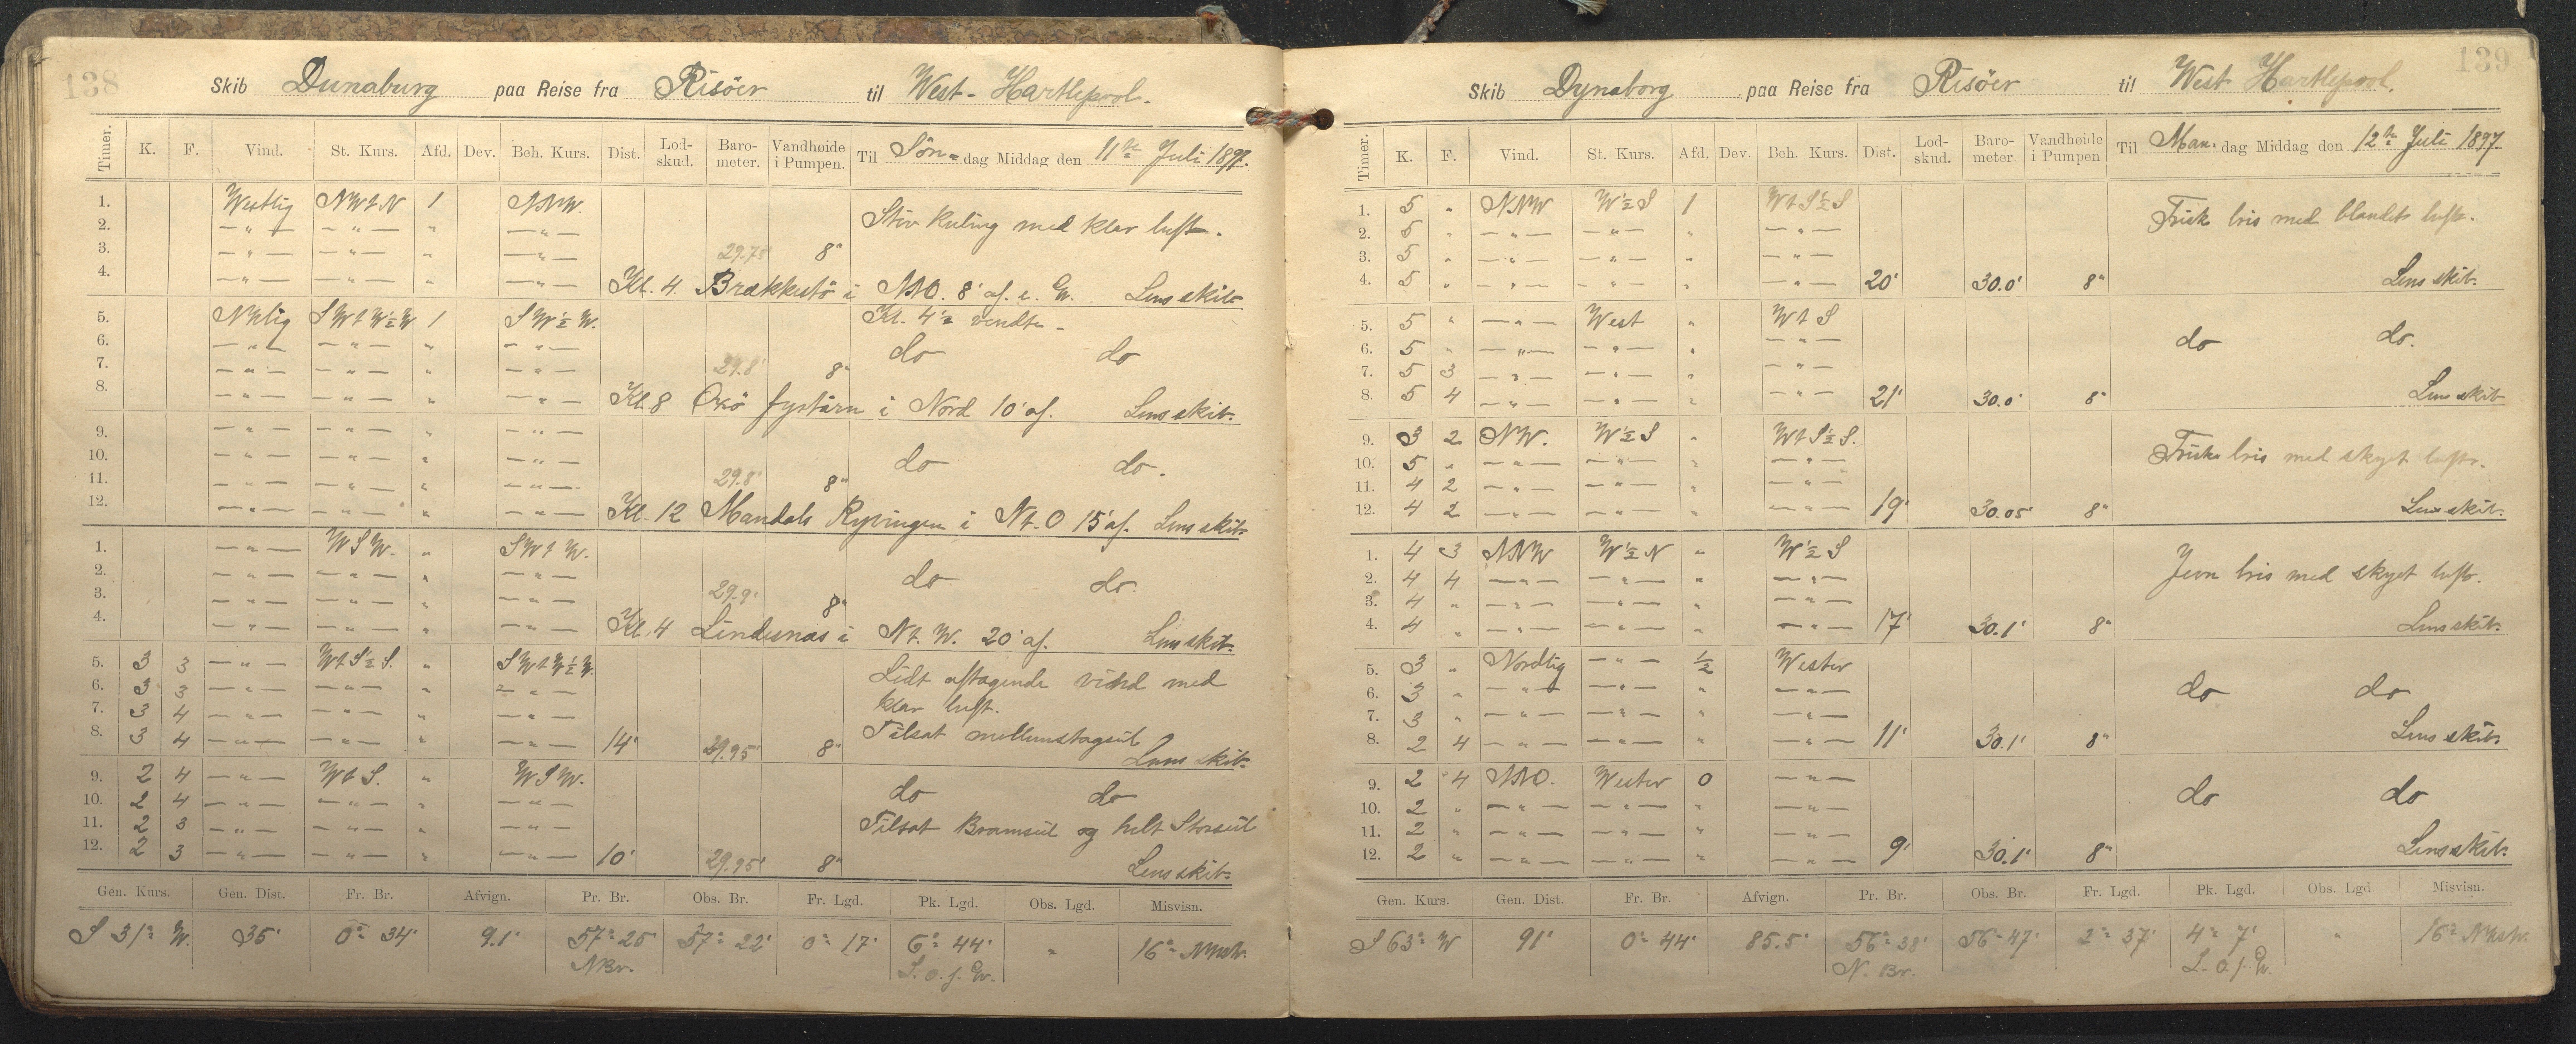 138
Skib Dunaburg paa Reise fra Risöer til West-Hartlepool.
Timer. K. F. Vind. St. Kurs. Afd. Dev. Beh. Kurs. Dist. Lod-skud. Baro-meter. Vandhøide i Pumpen. Til Søn-dag Middag den 11te Juli 1897.
1. Westlig NWtN 1 NNW. Stiv kuling med klar luft.
2. —"— —"— " —"—
3. —"— —"— " —"— 29.75 8"
4. —"— —"— " —"— Kl. 4 Brækkestö i NNO. 8' af. Lens skib
5. NWlig SWtW½W 1 SW½W. Kl. 4½ vendte
6. —"— —"— " —"— do do
7. —"— —"— " —"— 29.8' 8"
8. —"— —"— " —"— Kl. 8 Oxö fystårn i Nord 10' af. Lens skib.
9. —"— —"— " —"—
10. —"— —"— " —"— do do.
11. —"— —"— " —"— 29.8' 8"
12. —"— —"— " —"— Kl. 12 Mandals Ryvingen i Nt.O 15' af. Lens skib
1. —"— WSW. " SWtW.
2. —"— —"— " —"— do do.
3. —"— —"— " —"— 29.9' 8"
4. —"— —"— " —"— Kl. 4 Lindesnæs i Nt.W. 20' af. Lens skib.
5. 3 3 —"— WtS½S. " SWtW½W. Lidt aftagende vind med
6. 3 3 —"— —"— " —"— klar luft.
7. 3 4 —"— —"— " —"— Tilsat mellemstagseil
8. 3 4 —"— —"— " —"— 14' 29.95' 8" Lens skib.
9. 2 4 —"— WtS. " WSW. do do
10. 2 4 —"— —"— " —"—
11. 2 3 —"— —"— " —"— Tilsat Bramseil og helt Storseil
12. 2 3 —"— —"— " —"— 10' 29.95' 8" Lens skib.
Gen. Kurs. Gen. Dist. Fr. Br. Afvign. Pr. Br. Obs. Br. Fr. Lgd. Pk. Lgd. Obs. Lgd. Misvisn.
S 31° W. 35' 0° 34' 9.1' 57° 25' 57° 22' 0° 17' 6° 44' " 16° NWstr.
NBr. L.o.f.Gr.
139
Skib Dynaborg paa Reise fra Risöer til West Hartlepool.
Timer. K. F. Vind. St. Kurs. Afd. Dev. Beh. Kurs. Dist. Lod-skud. Baro-meter Vandhøide i Pumpen Til Man.dag Middag den 12te Juli 1897.
1. 5 " NNW W½S 1 WtS½S Frisk bris med blandet luft.
2. 5 " —"— —"— " —"—
3. 5 " —"— —"— " —"—
4. 5 " —"— —"— " —"— 20' 30.0' 8" Lens skib.
5. 5 " —"— West " WtS
6. 5 " —"— —"— " —"— do do.
7. 5 3 —"— —"— " —"—
8. 5 4 —"— —"— " —"— 21' 30.0' 8" Lens skib
9. 3 2 NW. W½S " WtS½S. Frisk bris med skyet luft.
10. 5 " —"— —"— " —"—
11. 4 2 —"— —"— " —"—
12. 4 2 —"— —"— " —"— 19' 30.05' 8" Lens skib.
1. 4 3 NNW W½N " W½S Jevn bris med skyet luft.
2. 4 4 —"— —"— " —"—
3. 4 " —"— —"— " —"—
4. 4 " —"— —"— " —"— 17' 30.1' 8" Lens skib.
5. 3 " Nordlig —"— ½ Wester
6. 3 " —"— —"— " —"— do do
7. 3 " —"— —"— " —"—
8. 2 4 —"— —"— " —"— 11' 30.1' 8" Lens skib.
9. 2 4 NNO. Wester 0 —"—
10. 2 " —"— —"— " —"— do do
11. 2 " —"— —"— " —"—
12. 2 " —"— —"— " —"— 9' 30.1' 8" Lens skib.
Gen. Kurs. Gen. Dist. Fr. Br. Afvign. Pr. Br. Obs. Br. Fr. Lgd. Pk. Lgd. Obs. Lgd. Misvisn.
S 63° W 91' 0° 44' 85.5' 56° 38' 56° 47' 2° 37' 4° 7' " 16° NWstr.
N. Br. L.o.f.Gr.